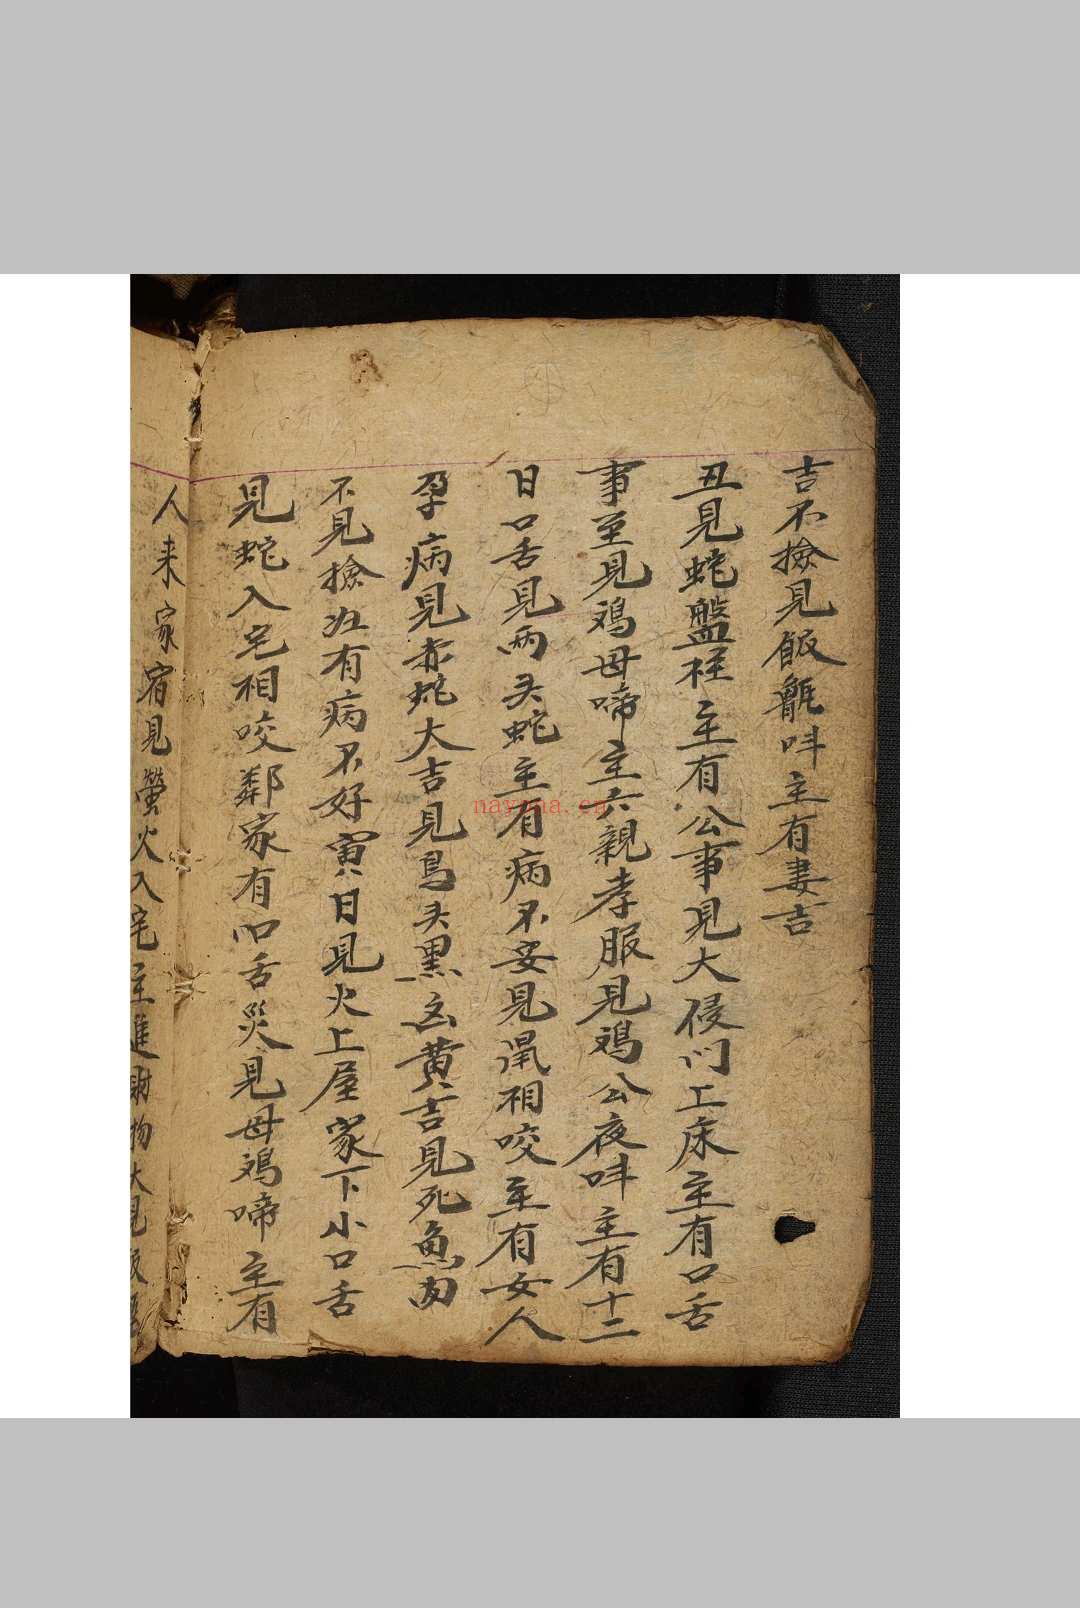 吉不撿見飯甑呌主有妻吉
丑見蛇盤柱主有公事見犬侵门工床主有口舌
事至見鳮母啼主六親孝服見鳮公夜呌主有十二
日口舌見両头蛇主有病不安見鼠相咬主有女人
孕病見赤蛇大吉見鳥头黑 黄吉見死魚肉
不見撿 有病不好寅日見火上屋家下小口舌
見蛇入宅相咬鄰家有口舌災見母鳮啼主有
人来家宿見螢火入宅主進財物大見
nayona.cn